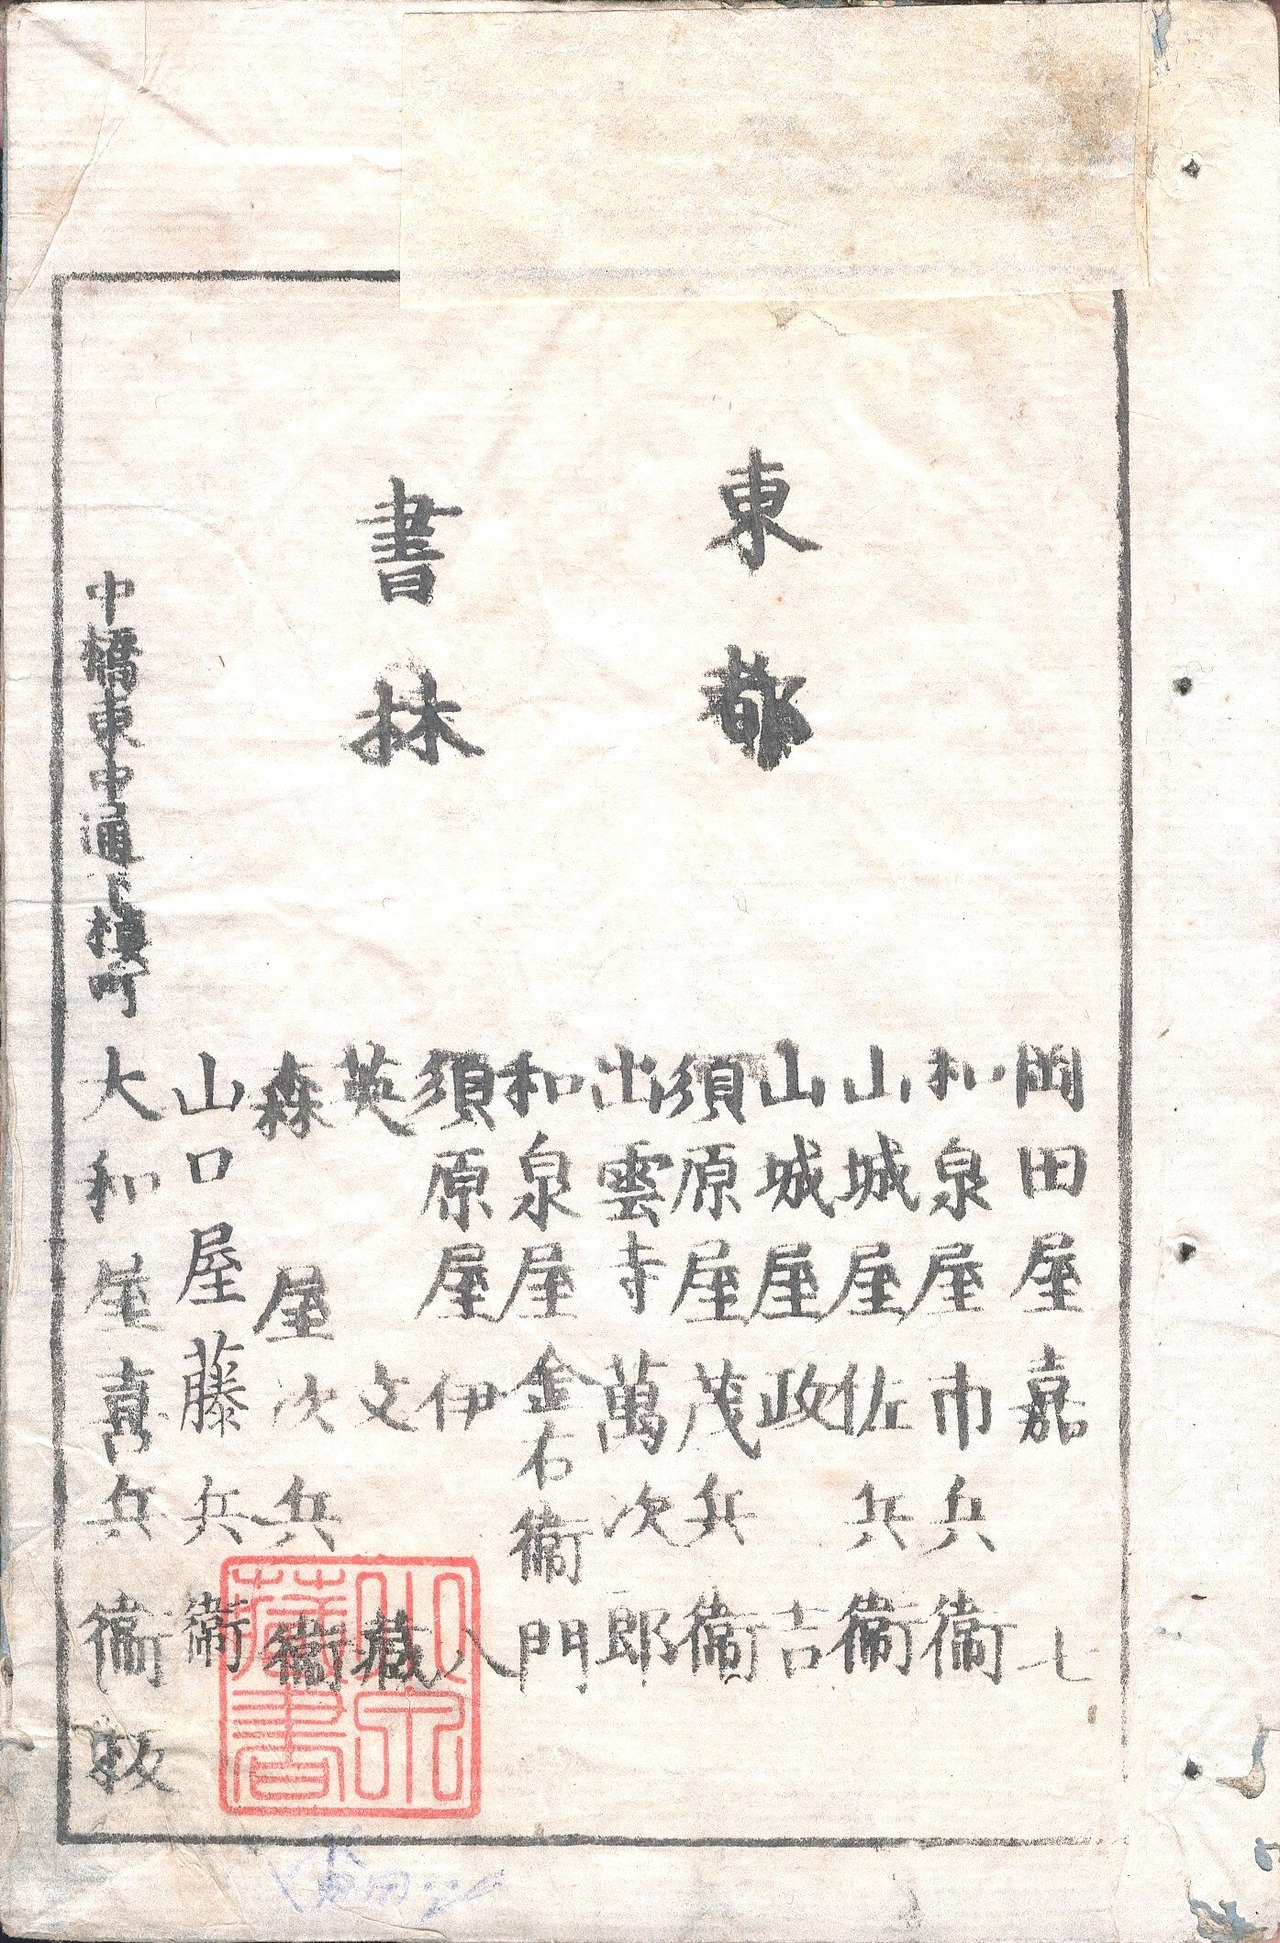 東都
書林
岡田屋嘉七
和泉屋市兵衞
山城屋佐兵衞
山城屋政吉
須原屋茂兵衞
出雲寺萬次郎
和泉屋金右衞門
須原屋伊八
英文藏
森屋次兵衞
山口屋藤兵衞
中橋東中通下槙町
大和屋喜兵衞板
小泉
藏書